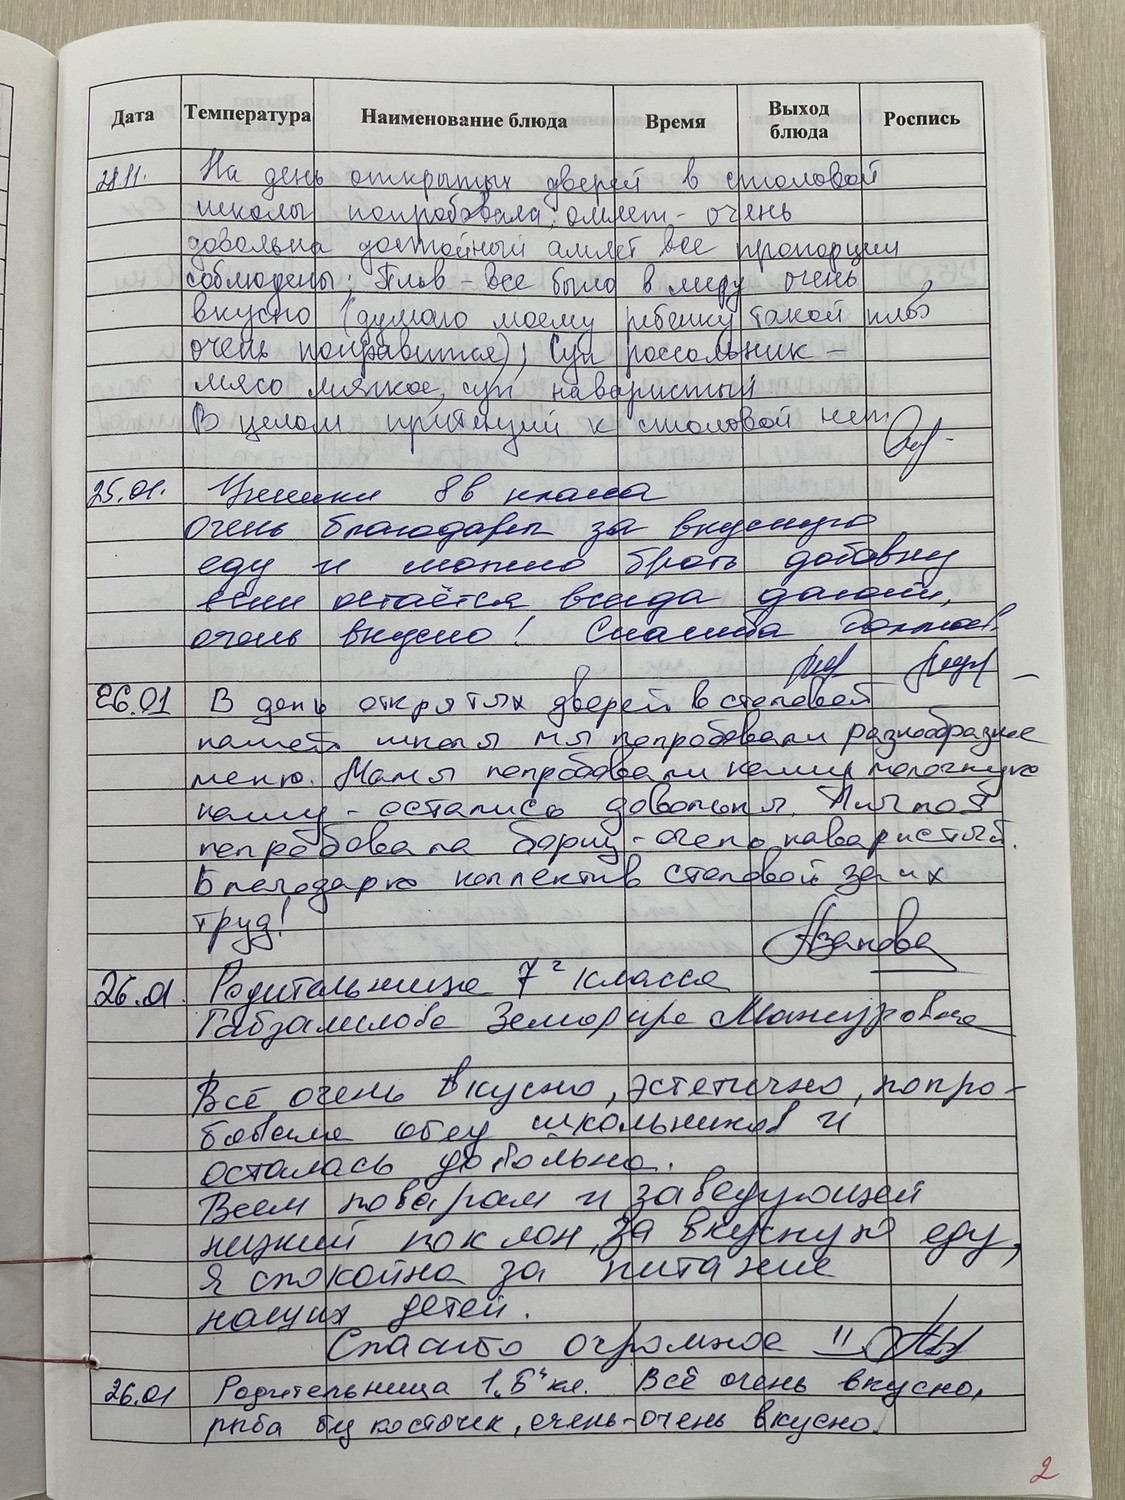 Дата Температура Наименование блюда Время Выход блюда Роспись
На день открытых дверей в столовой
школы попробовала: омлет - очень
довольна достойный амлет все пропорции
соблюдены; Плов - все было в меру очень
вкусно (думаю моему ребенку такой плов
очень понравится); Суп россольник -
мясо мягкое, суп наваристый
В целом притензий к столовой нет.
25.01. Ученики 8в класса
очень благодарны за вкусную
еду и можно брать добавку
если остаётся всегда дают,
очень вкусно! Спасиба
26.01 В день открытых дверей в столовой
нашей школы мы попробовали разнообразное
меню. Мамы попробовали кашу молочную
кашу - остались довольны. Я
попробовала борщ - очень наваристый.
Благодарю коллектив столовой за их
труд!
26.01. Родительница 7г класса
Всё очень вкусно, эстетично, попро-
бовала обед школьников и
осталась довольна.
Всем поварам и заведующей
низкий поклон за вкусную еду,
я спокойна за питание
наших детей.
Спасибо огромное !!
26.01 Родительница 1 "Б" кл. Всё очень вкусно,
рыба без косточек, очень-очень вкусно.
2